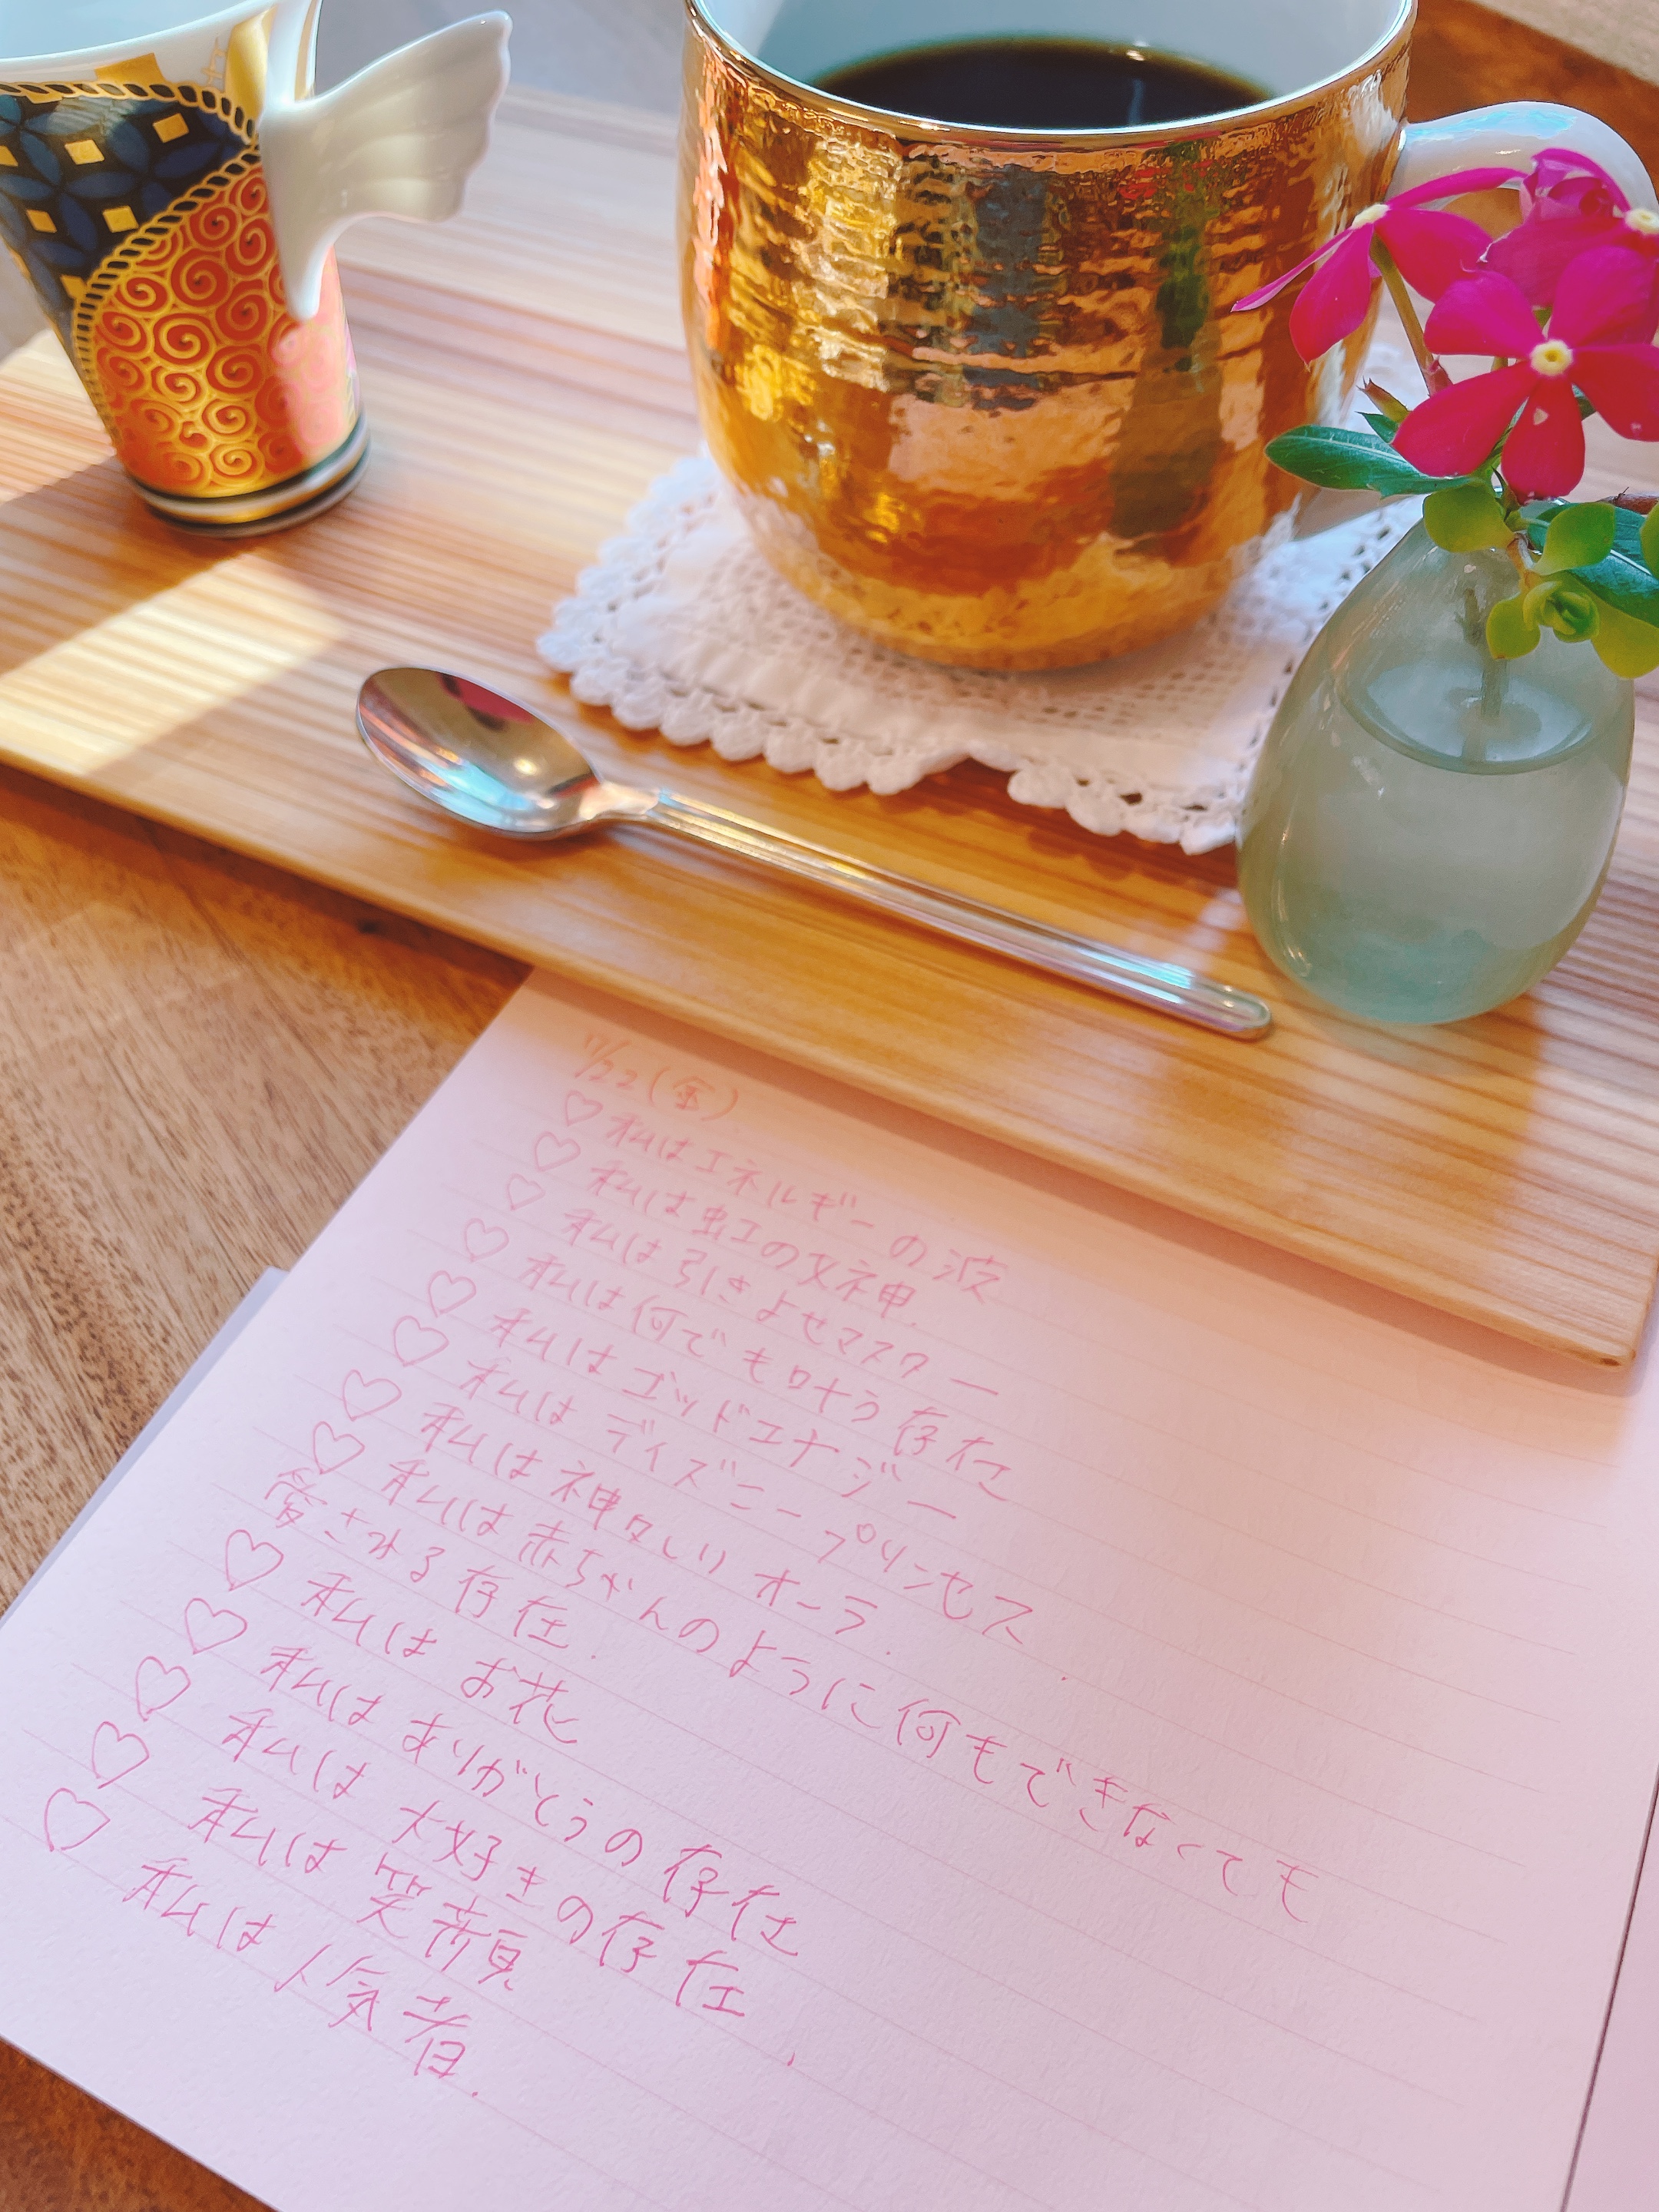 7/22(金)
♡ 私はエネルギーの波
♡ 私は虹の女神.
♡ 私は引きよせマスター
♡ 私は何でも叶う存在
♡ 私はゴッドエナジー
♡ 私はディズニープリンセス.
♡ 私は神々しいオーラ.
♡ 私は赤ちゃんのように何もできなくても
愛される存在.
♡ 私はお花
♡ 私はありがとうの存在
♡ 私は大好きの存在.
♡ 私は笑顔
♡ 私は人気者.